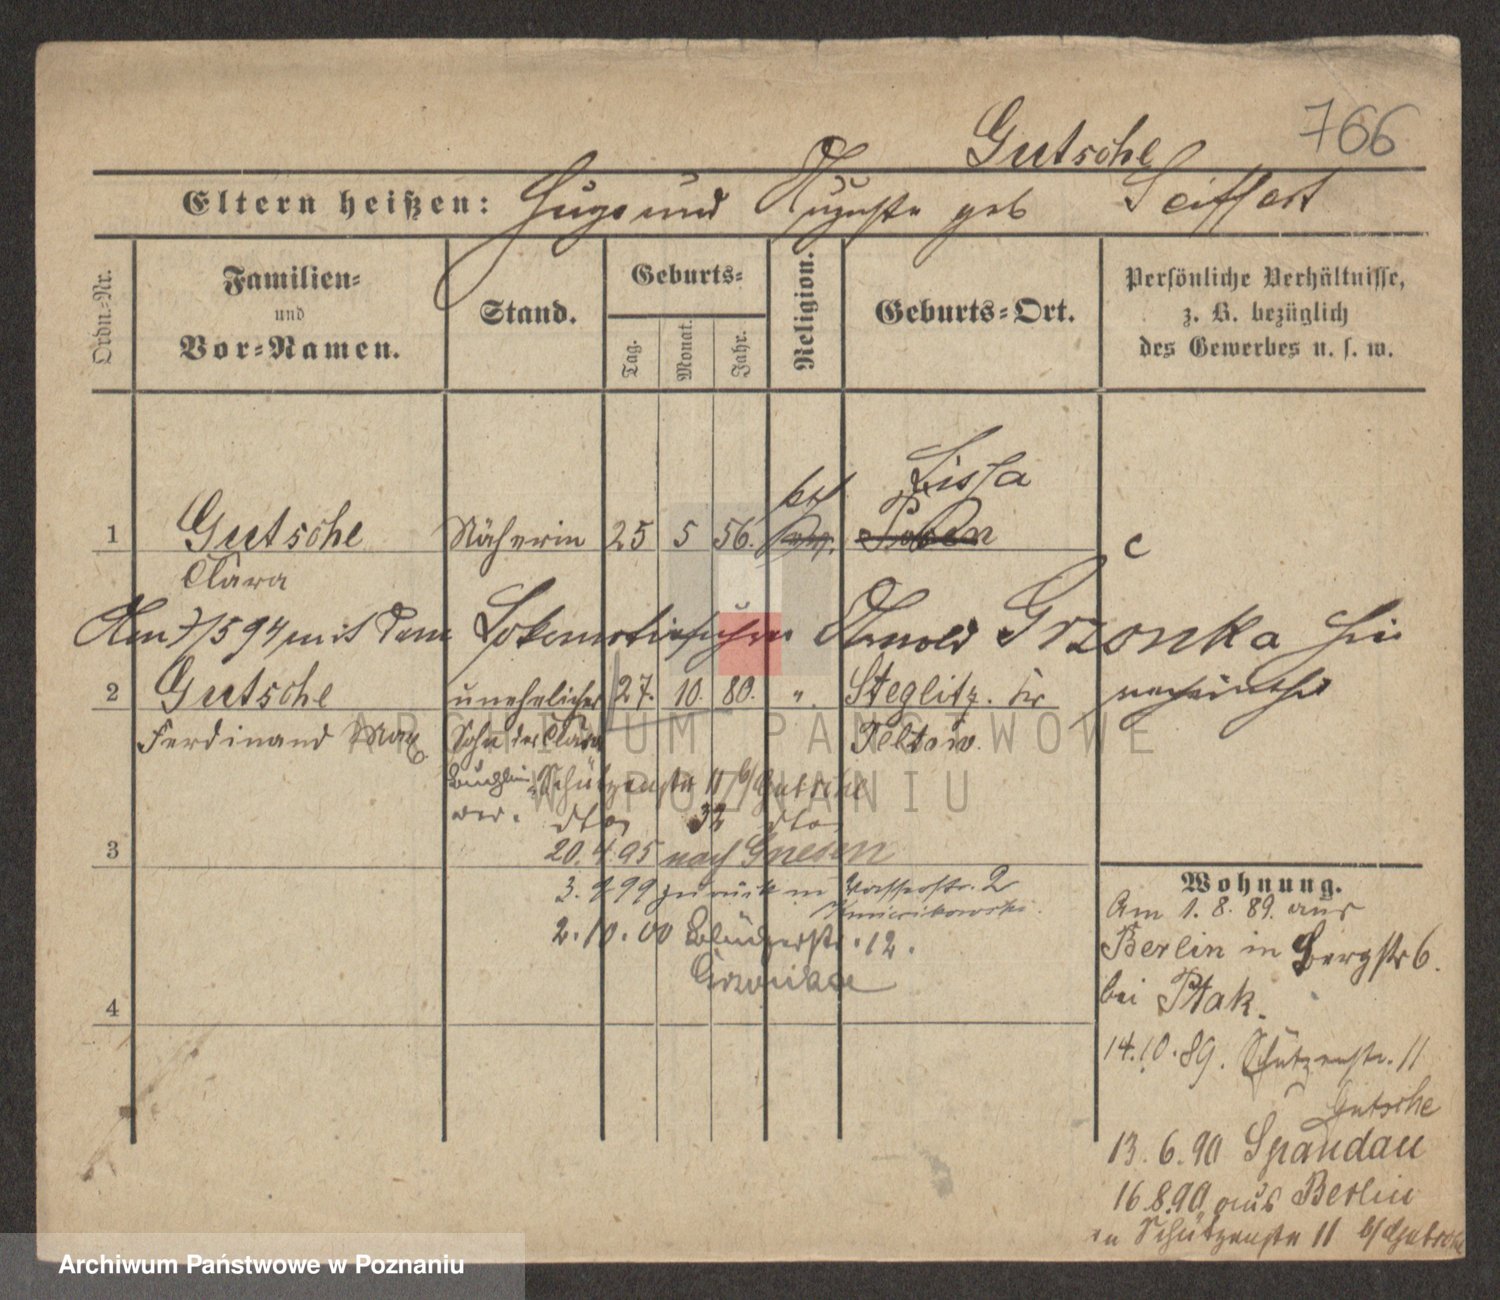 766
Gutsche
Eltern heißen: Hugo und Auguste geb Seiffert
Ordn.-Nr.
Familien-
und
Vor-Namen.
Stand.
Geburts-
Tag.
Monat.
Jahr.
Religion.
Geburts-Ort.
Persönliche Verhältnisse,
z. B. bezüglich
des Gewerbes u. s. w.
Lissa
1 Gutsche Näherin 25 5 56. Posen
c
Clara
Am 7/5 94 mit dem Lokomotivführer Arnold Grzonka hier
2 Gutsche unehelicher 27. 10. 80. " Steglitz. Kr verheirathet
Ferdinand Max Sohn der Clara Teltow.
Schützenstr 11 b/ Gutsche
dto 32 dto
3
20.4.95 nach Gnesen
3. 99 zurück in 2
2.10.00 Blücherstr. 12.
Grzonka
4
Wohnung.
Am 1. 8. 89. aus
Berlin in Bergstr 6.
bei Ptak.
14.10.89. Schützenstr. 11
Gutsche
13.6.90 Spandau
16.8.90 aus Berlin
in Schützenstr 11 b/ Gutsche
ARCHIWUM PAŃSTWOWE
W POZNANIU
Archiwum Państwowe w Poznaniu